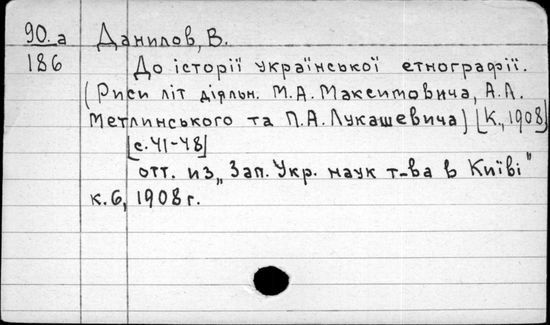 90.a Данилов, В.
186 До історії української етнографії.
(Риси літ діяльн. М.А. Максимовича, А.Л.
Метлинського та П.А. Лукашевича) [К., 1908]
[с. 41-48]
отт. из „Зап. Укр. наук т-ва в Київі"
к. 6, 1908 г.